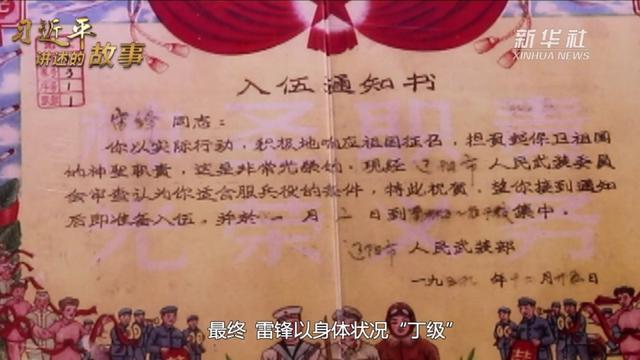 习近平
讲述的故事
新华社
XINHUA NEWS
入伍通知书
雷锋 同志:
你以实际行动,积极地响应祖国征召,担负起保卫祖国
的神圣职责,这是非常光荣的。现经 辽阳市 人民武装委员
会审查认为你适合服兵役的条件,特此祝贺,望你接到通知
后即准备入伍,并於 一 月 二 日到 集中。
辽阳市 人民武装部
一九五九 年 十二 月 廿 日
最终 雷锋以身体状况“丁级”